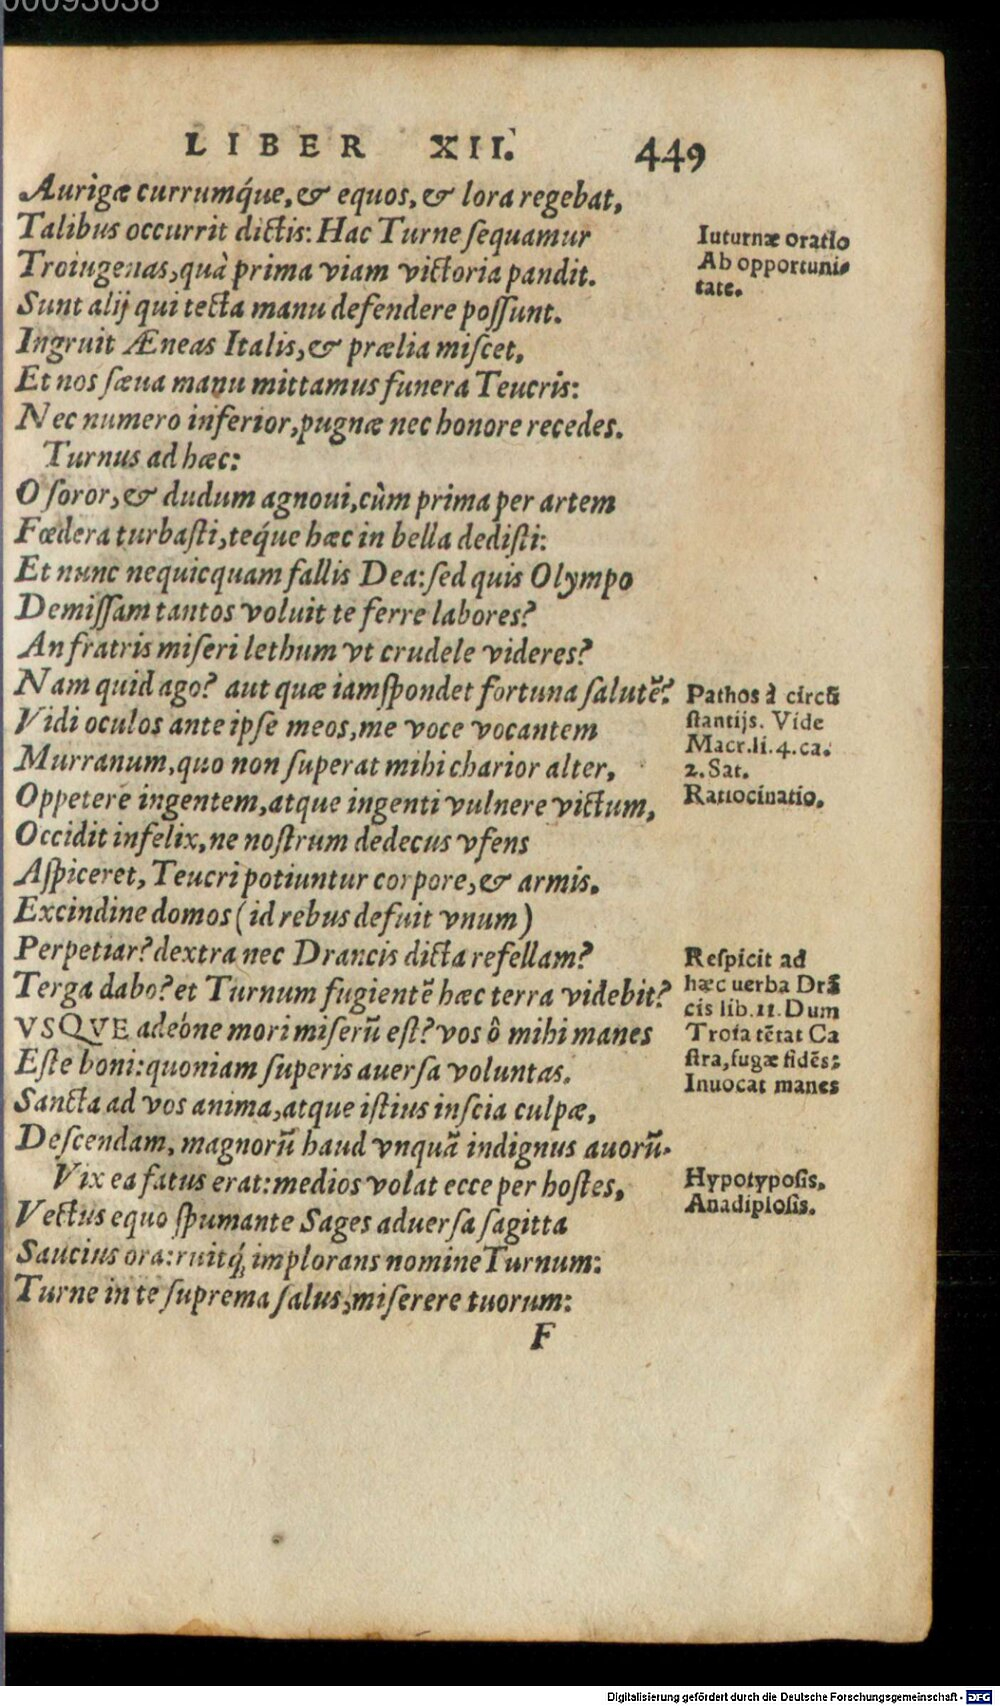 00093038
LIBER XII. 449
Aurigæ currumq́ue, & equos, & lora regebat,
Talibus occurrit dictis: Hac Turne ſequamur
Troiugenas, quà prima viam victoria pandit.
Sunt alij qui tecta manu defendere poſſunt.
Ingruit Æneas Italis, & prælia miſcet,
Et nos ſæua manu mittamus funera Teucris:
Nec numero inferior, pugnæ nec honore recedes.
Turnus ad hæc:
O ſoror, & dudum agnoui, cùm prima per artem
Fœdera turbaſti, teq́ue hæc in bella dediſti:
Et nunc nequicquam fallis Dea: ſed quis Olympo
Demiſſam tantos voluit te ferre labores?
An fratris miſeri lethum vt crudele videres?
Nam quid ago? aut quæ iam ſpondet fortuna ſalutē?
Vidi oculos ante ipſe meos, me voce vocantem
Murranum, quo non ſuperat mihi charior alter,
Oppetere ingentem, atque ingenti vulnere victum,
Occidit infelix, ne noſtrum dedecus vfens
Aſpiceret, Teucri potiuntur corpore, & armis.
Excindine domos (id rebus defuit vnum)
Perpetiar? dextra nec Drancis dicta refellam?
Terga dabo? et Turnum fugientē hæc terra videbit?
VSQVE adeóne mori miſerū eſt? vos ô mihi manes
Eſte boni: quoniam ſuperis auerſa voluntas.
Sancta ad vos anima, atque iſtius inſcia culpæ,
Deſcendam, magnorū haud vnquā indignus auorū.
Vix ea fatus erat: medios volat ecce per hoſtes,
Vectus equo ſpumante Sages aduerſa ſagitta
Saucius ora: ruitq́; implorans nomine Turnum:
Turne in te ſuprema ſalus, miſerere tuorum:
F
Iuturnæ oratio
Ab opportuni-
tate.
Pathos à circū
ſtantijs. Vide
Macr. li. 4. ca.
2. Sat.
Ratiocinatio.
Reſpicit ad
hæc uerba Drā
cis lib. 11. Dum
Troia tētat Ca
ſtra, fugæ fidēs:
Inuocat manes
Hypotypoſis.
Anadiploſis.
Digitalisierung gefördert durch die Deutsche Forschungsgemeinschaft - DFG